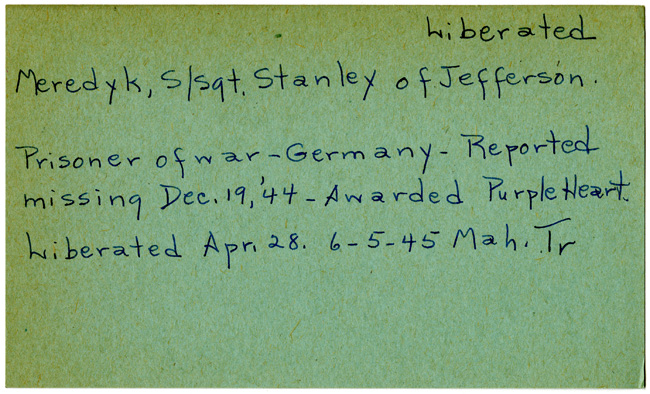 Liberated
Meredyk, S/sgt. Stanley of Jefferson.
Prisoner of war - Germany - Reported
missing Dec. 19, '44 - Awarded Purple Heart.
Liberated Apr. 28. 6-5-45 Mah. Tr